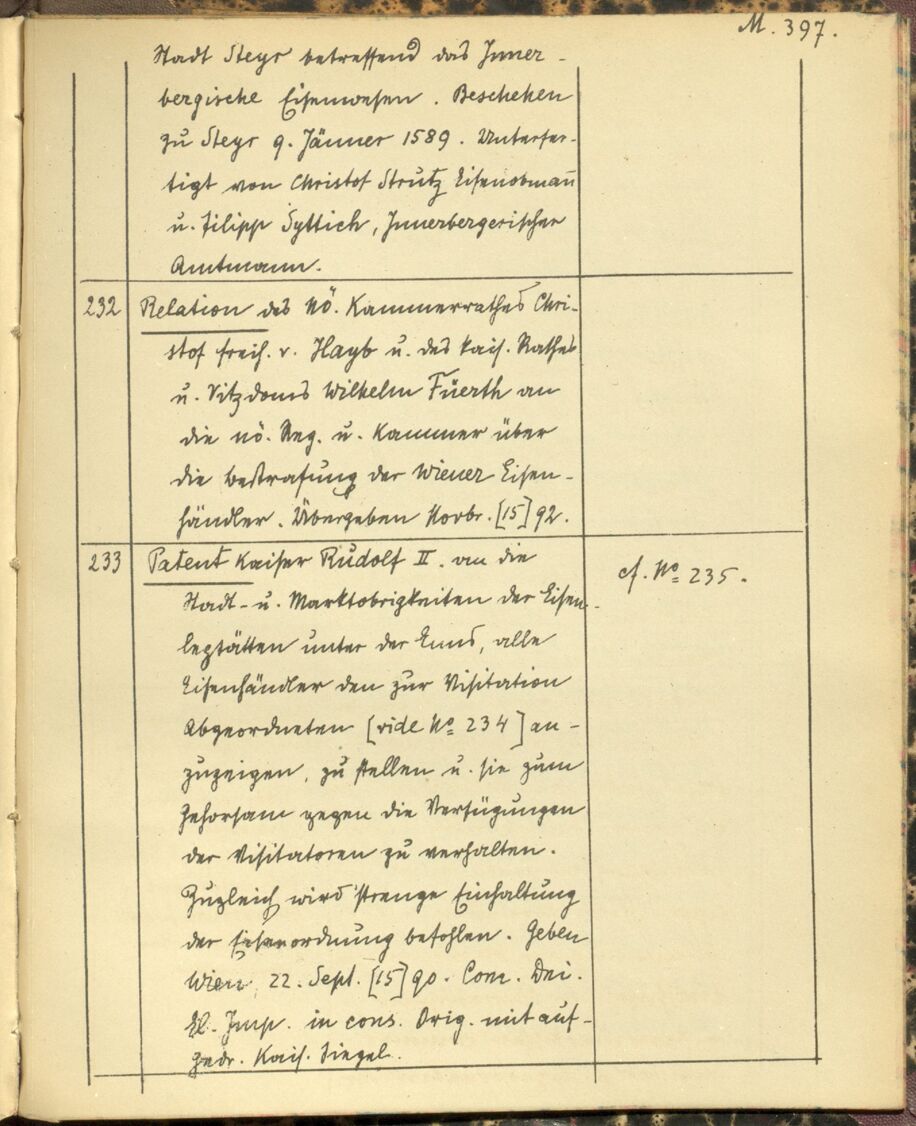 M. 397.
Stadt Steyr betreffend das Inner-
bergische Eisenwesen. Beschehen
zu Steyr 9. Jänner 1589. Unterfer-
tigt von Christof Strutz Eisenobmañ
u. Filipp Syttich, Innerbergerischer
Amtmann.
232 Relation des nö. Kammerrathes Chri-
stof Freih. v. Hayb u. des kais. Rathes
u. Vitzdoms Wilhelm Füerth an
die nö. Reg. u. Kammer über
die Bestrafung der Wiener Eisen-
händler. Übergeben Novbr. [15]92.
233 Patent Kaiser Rudolf II. an die
cf. No 235.
Stadt- u. Marktobrigkeiten der Eisen-
legstätten unter der Enns, alle
Eisenhändler den zur Visitation
Abgeordneten [vide No 234] an-
zuzeigen, zu stellen u. sie zum
Gehorsam gegen die Verfügungen
der Visitatoren zu verhalten.
Zugleich wird strenge Einhaltung
der Eisenordnung befohlen. Geben
Wien, 22. Sept. [15]90. Com. Dni.
El. Imp. in cons. Orig. mit auf-
gedr. Kais. Siegel.